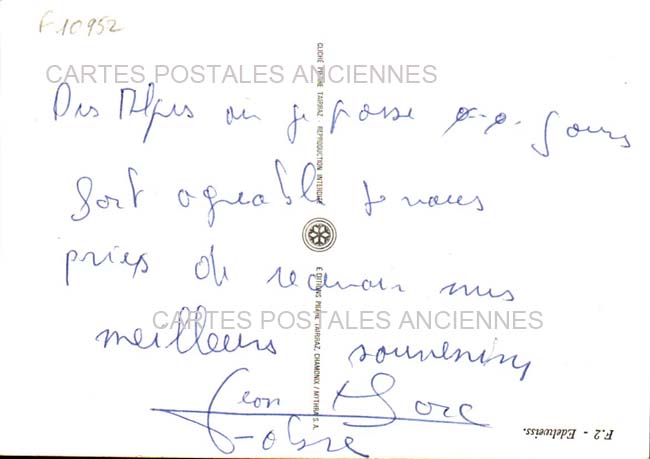 F.10952
CARTES POSTALES ANCIENNES
Des Alpes où je passe q.q. jours
fort agréable je vous
pries de recevoir mes
meilleurs souvenirs
CARTES POSTALES ANCIENNES
CLICHÉ PIERRE TAIRRAZ - REPRODUCTION INTERDITE
EDITIONS PIERRE TAIRRAZ, CHAMONIX / MYTHRA S.A.
F.2 - Edelweiss.